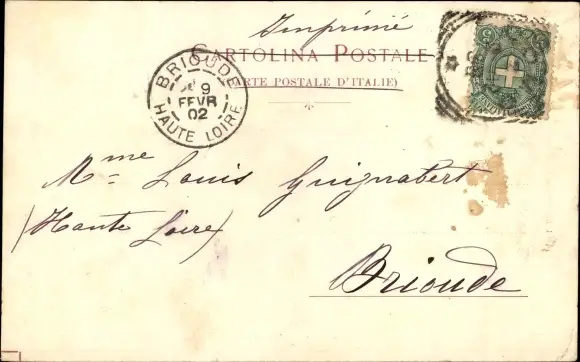 Imprimé
CARTOLINA POSTALE
(CARTE POSTALE D'ITALIE)
BRIOUDE
9
FEVR
02
HAUTE LOIRE
5
Mme Louis Guignabert
(Haute Loire)
Brioude